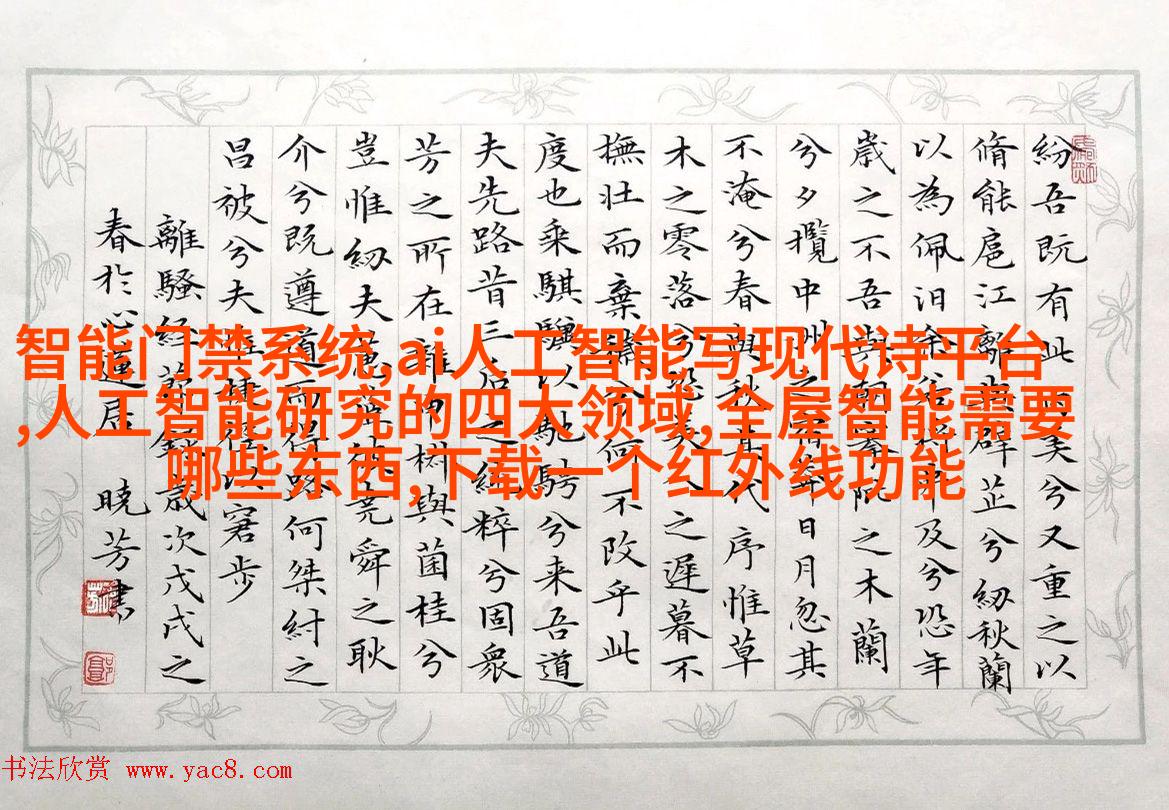 紛吾既有此美兮又重之以
脩能扈江離與辟芷兮紉秋蘭
以為佩汨余若將不及兮恐年
歲之不吾與朝搴阰之木蘭
兮夕攬中州之宿莽日月忽其
不淹兮春與秋其代序惟草
木之零落兮恐美人之遲暮不
撫壯而棄穢兮何不改乎此
度也乘騏驥以馳騁兮来吾道
夫先路昔三后之純粹兮固衆
芳之所在雜申椒與菌桂兮
豈惟紉夫蕙茝彼堯舜之耿
介兮既遵道而得路何桀紂之
昌被兮夫唯捷徑以窘步
離騷經節錄歲次戊戌之
春於心蓮居 曉芳書
智能门禁系统,ai人工智能写现代诗平台
,人工智能研究的四大领域,全屋智能需要
哪些东西,下载一个红外线功能
书法欣赏 www.yac8.com